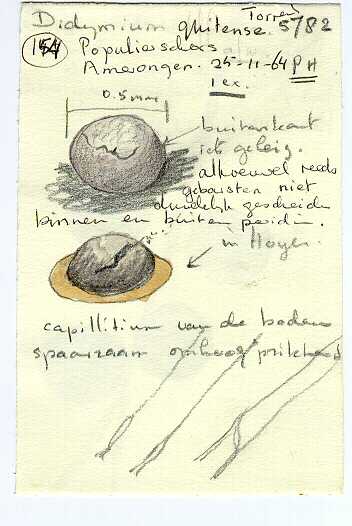 Didymium quitense. Torrend 5782
154 Populierschors
Amerongen. 25-11-64 PH
1 ex.
0.5 mm
buitenkant
iets geleiig.
alhoewel reeds
gebarsten niet
duidelijk gescheiden
binnen en buiten peridium.
in Hoyer.
capillitium van de bodem
spaarzaam omhoog